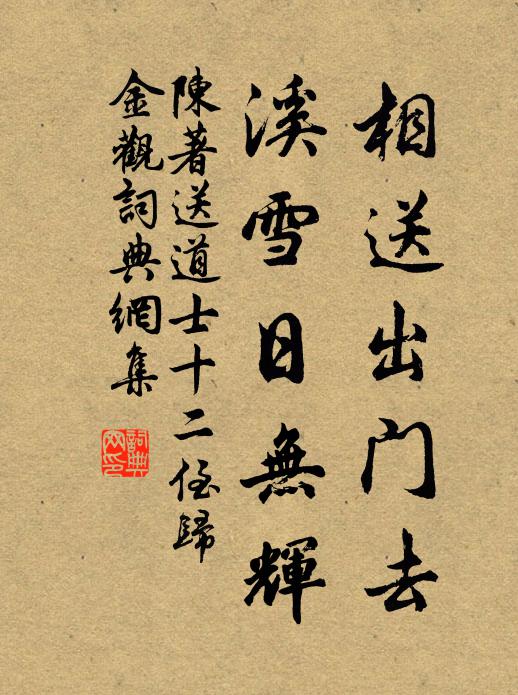 相送出门去
溪雪日無輝
陳著送道士十二侄歸
金觀詞典網集
詞典网印